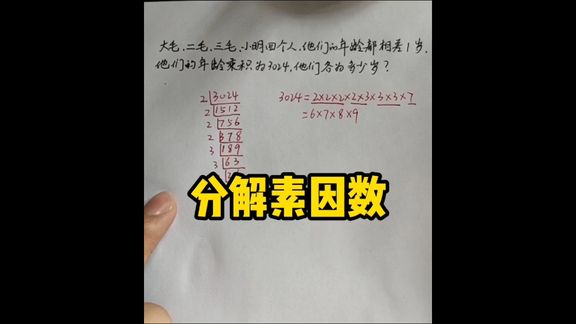 大毛、二毛、三毛、小明四个人,他们的年龄都相差1岁,
他们的年龄乘积为3024,他们各为多少岁?
2 3024
2 1512
2 756
2 378
3 189
3 63
3024=2×2×2×2×3×3×3×7
=6×7×8×9
分解素因数